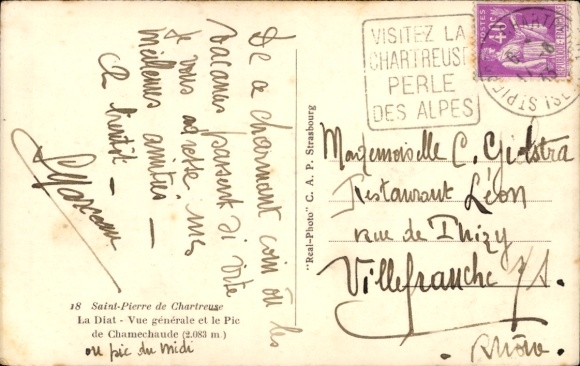 De ce charmant coin où les
vacances passent si vite
je vous adresse mes
meilleures amitiés —
à bientôt —
18 Saint-Pierre de Chartreuse
La Diat - Vue générale et le Pic
de Chamechaude (2.083 m)
ou pic du midi
"Real-Photo" C. A. P. Strasbourg
VISITEZ LA
CHARTREUSE
PERLE
DES ALPES
POSTES
40c
Mademoiselle C.
Restaurant Léon
rue de Thizy
Villefranche s/S.
. Rhône .